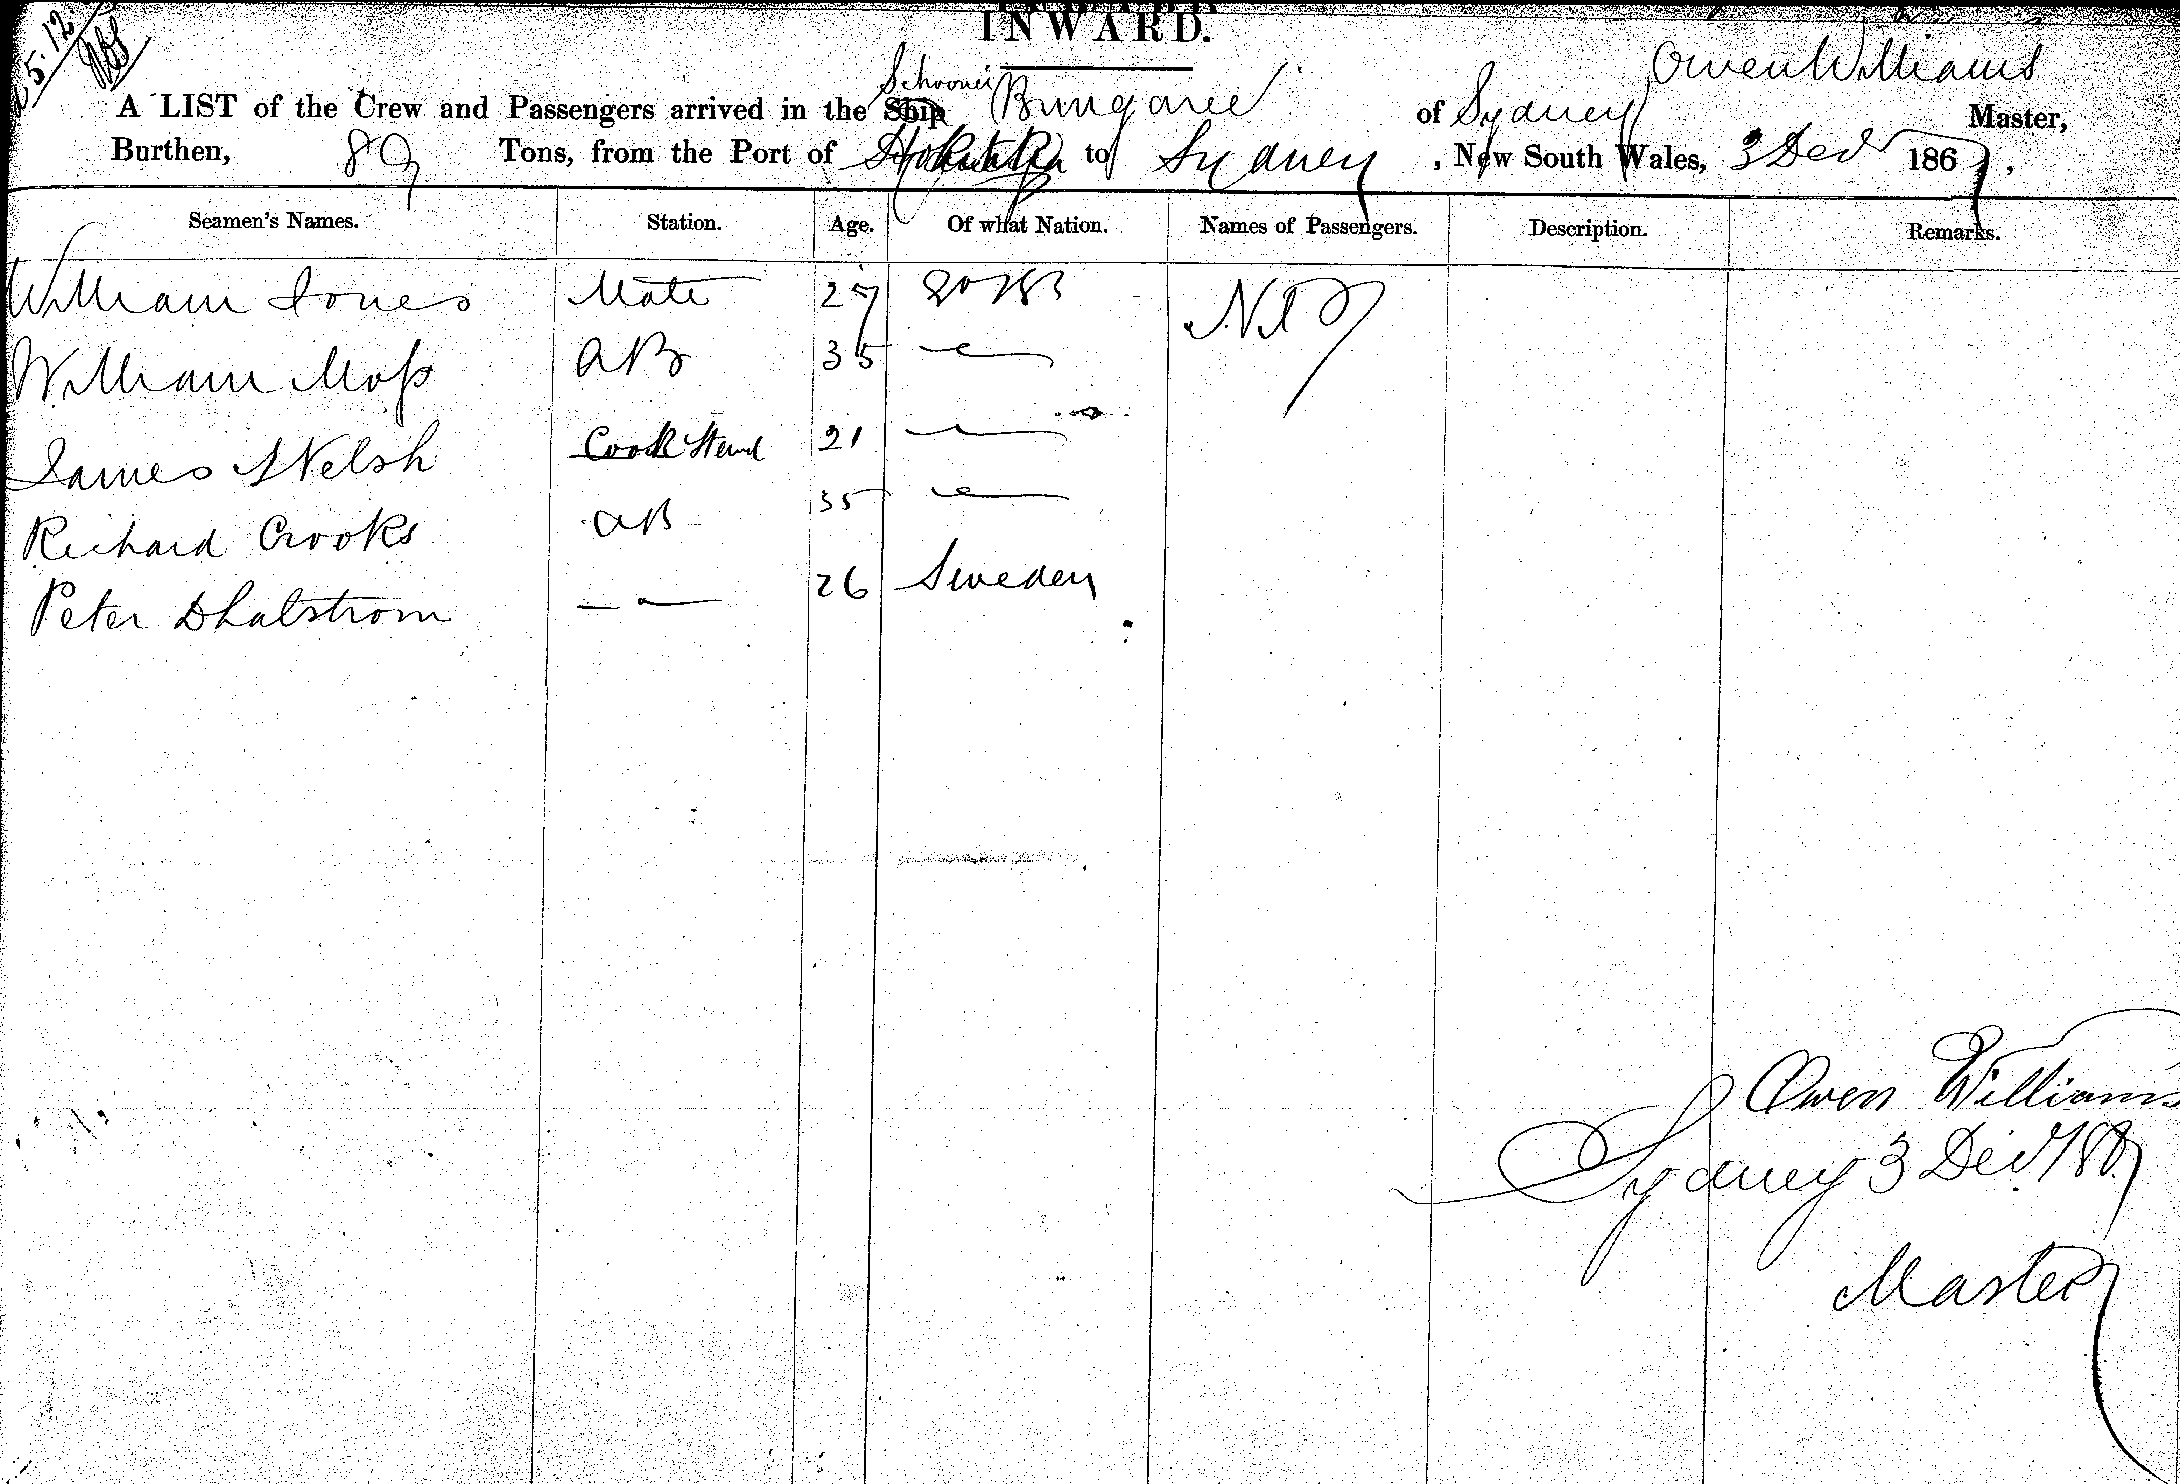 5.12
INWARD.
Owen Williams
Schooner
A LIST of the Crew and Passengers arrived in the Ship Bungaree of Sydney Master,
Burthen, 89 Tons, from the Port of Hokitika to Sydney, New South Wales, 3 Decr 1867.
Seamen's Names. Station. Age. Of what Nation. Names of Passengers. Description. Remarks.
William Jones Mate 27 Nil
William Moss AB 35 —
James Welsh Cook Stewd 21 —
Richard Crooks AB 35 —
Peter Dhalstrom — 26 Sweden
Owen Williams
Sydney 3 Decr
Master